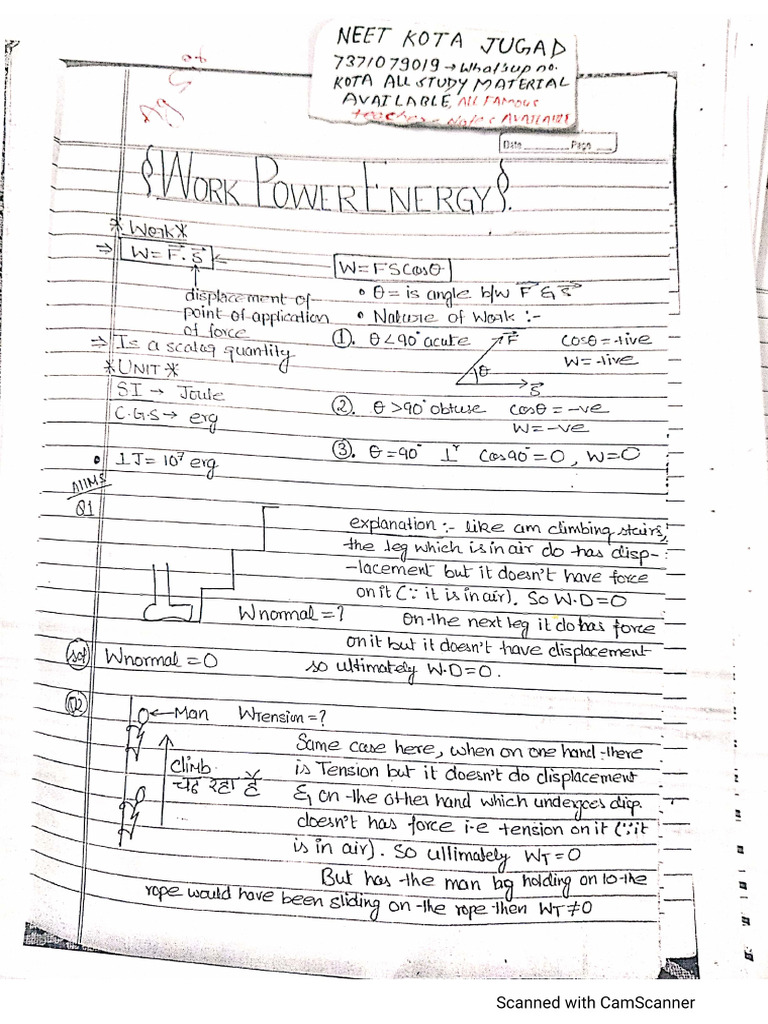 NEET KOTA JUGAD
7371079019 → Whatsup no.
KOTA ALL STUDY MATERIAL
AVAILABLE, ALL FAMOUS
teachers Notes AVAILABLE
Date Page
WORK POWER ENERGY
* Work *
⇒ W = F⃗ . S⃗
displacement of
point of application
of force
⇒ Is a scalar quantity
* UNIT *
SI → Joule
C.G.S → erg
• 1J = 10⁷ erg
W = FSCosθ
• θ = is angle b/w F⃗ & S⃗
• Nature of Work :-
①. θ < 90° acute F⃗ θ S⃗ cosθ = +ive
W = +ive
②. θ > 90° obtuse cosθ = -ve
W = -ve
③. θ = 90° ⊥ʳ Cos90° = 0, W = 0
AIIMS
Q1
W normal = ?
explanation :- like am climbing stairs,
the leg which is in air do has disp-
-lacement but it doesn't have force
on it (∵ it is in air). So W.D = 0
on the next leg it do has force
on it but it doesn't have displacement
so ultimately W.D = 0.
Sol W normal = 0
Q2
← Man W Tension = ?
Climb
चढ़ रहा है
Same case here, when on one hand there
is Tension but it doesn't do displacement
& on the other hand which undergoes disp.
doesn't has force i.e tension on it (∵ it
is in air). So ullimately W_T = 0
But has the man bg holding on to the
rope would have been sliding on the rope then W_T ≠ 0
Scanned with CamScanner